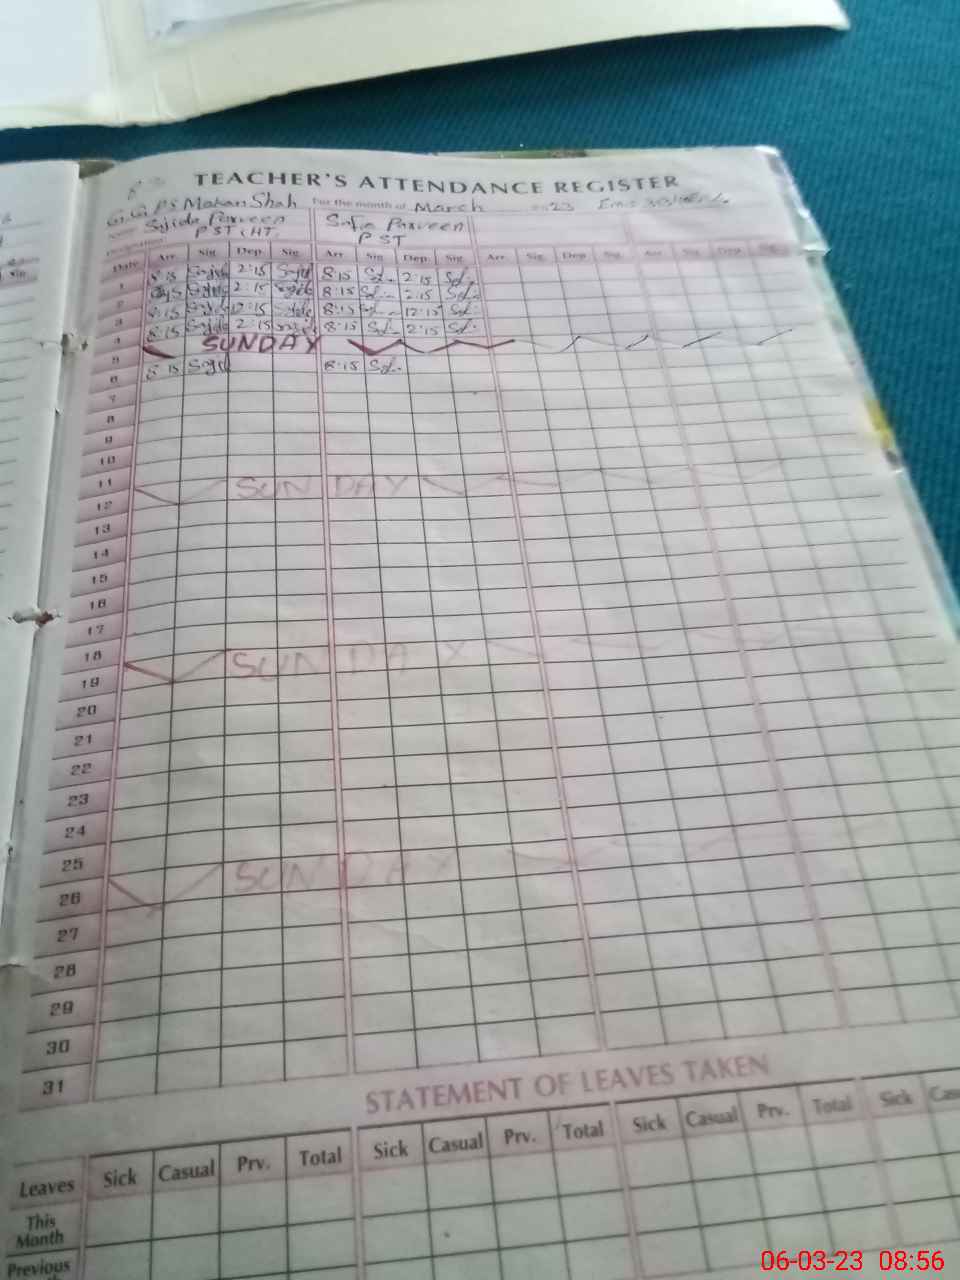 TEACHER'S ATTENDANCE REGISTER
G.G.P.S Makan Shah For the month of March 23
Name Sajida Parveen Safia Parveen
Designation PST, HT. PST
Date Arr. Sig. Dep. Sig. Arr. Sig. Dep. Sig. Arr. Sig. Dep. Sig. Arr. Sig. Dep. Sig.
1 8:15 Sajida 2:15 Sajida 8:15 Sf. 2:15 Sf.
2 8:15 Sajida 2:15 Sajida 8:15 Sf. 2:15 Sf.
3 8:15 Sajida 12:15 Sajida 8:15 Sf. 12:15 Sf.
4 8:15 Sajida 2:15 Sajida 8:15 Sf. 2:15 Sf.
5 SUNDAY
6 8:15 Sajid 8:15 Sf.
7
8
9
10
11
12 SUNDAY
13
14
15
16
17
18
19 SUNDAY
20
21
22
23
24
25
26 SUNDAY
27
28
29
30
31
STATEMENT OF LEAVES TAKEN
Leaves Sick Casual Prv. Total Sick Casual Prv. Total Sick Casual Prv. Total Sick Cas
This Month
Previous
06-03-23 08:56